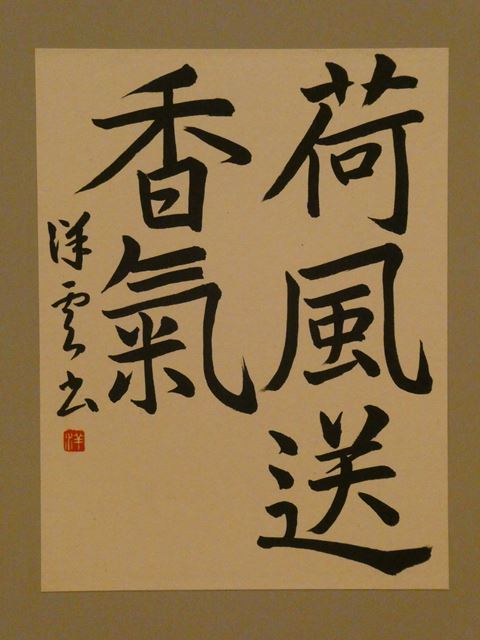 荷風送
香氣
洋雲書
洋